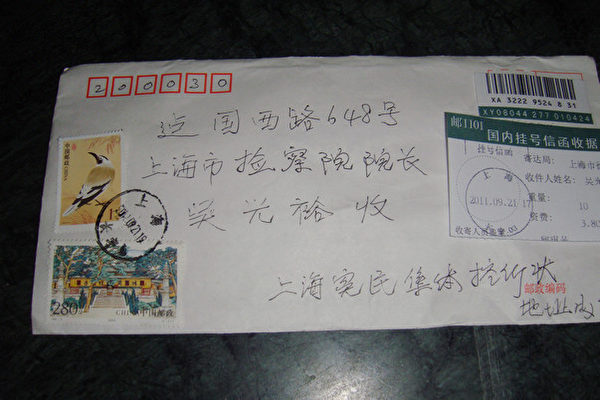 200030
XA 3222 9524 8 31
XY06044 277 010424
邮1101 国内挂号信函收据
挂号信函
寄达局: 上海市
收件人姓名: 吴光
2011.09.21 17
重量: 10
资费: 3.80
上海
中国邮政
280
CHINA 中国邮政
国西路648号
上海市检察院院长
吴光裕 收
上海冤民集体控诉状
邮政编码
地址